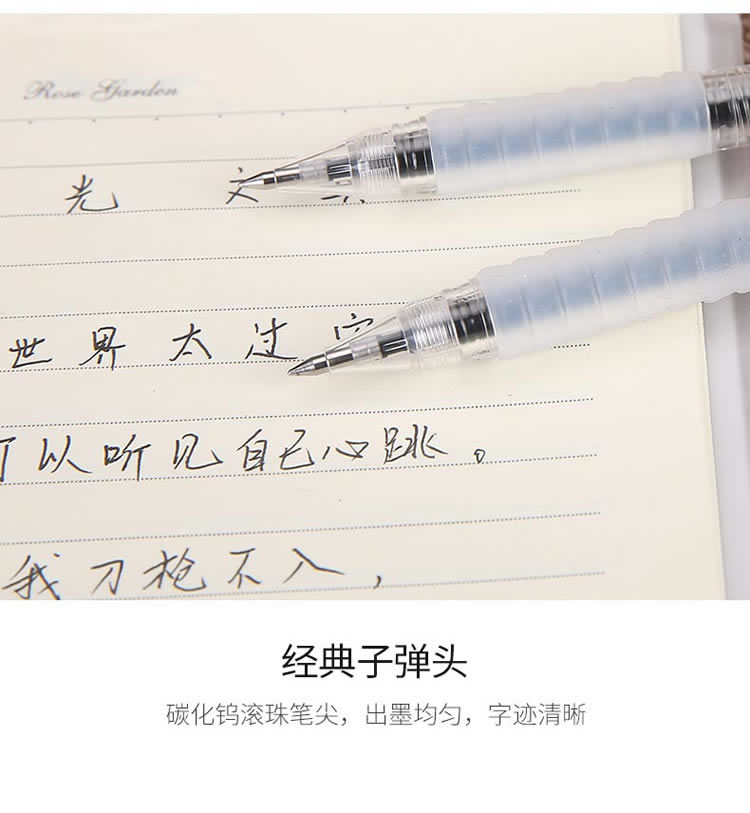 Rose Garden
光 文
世界太过安
可以听见自己心跳。
我刀枪不入，
经典子弹头
碳化钨滚珠笔尖，出墨均匀，字迹清晰